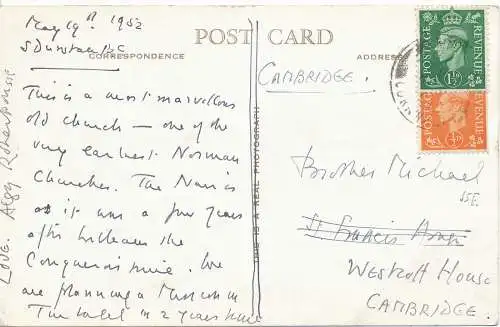 May 19th 1952
S Dunstan
POST CARD
CORRESPONDENCE
ADDRESS
CAMBRIDGE.
This is a most marvellous
old church — one of the
very earliest Norman
Churches. The Nave is
as it was a few years
after William the
Conqueror's time. We
are planning a Mission in
in 2 years time
Love. Algy Robertson SSF
THIS IS A REAL PHOTOGRAPH
POSTAGE REVENUE
1½D
POSTAGE REVENUE
½D
Brother Michael
SSF
St Francis House
Westcott House
CAMBRIDGE.